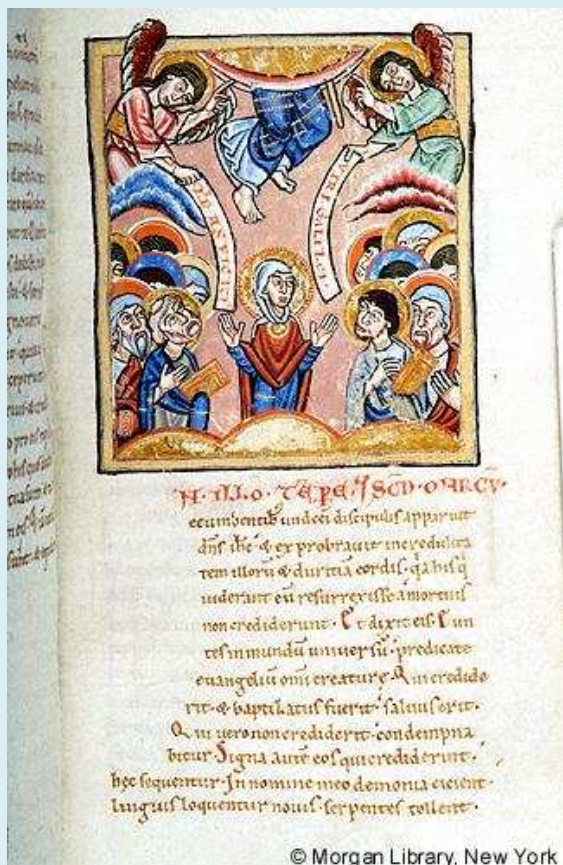 VIRI GALILEI
N ILLO TEPRE SCD MARCV
ecumbentib undeci discipulis apparuit
dns ihc & exprobrauit incredulita
tem illoru & duritia cordis qa his q
uiderant eu resurrexisse a mortuis
non crediderunt Et dixit eis Eun
tes in mundu uniuersu predicate
euangeliu omi creature Qui credide
rit & baptizatus fuerit saluus erit
Qui uero non crediderit condempna
bitur Signa aute eos qui crediderint
hec sequentur In nomine meo demonia eicient
linguis loquentur nouis serpentes tollent
© Morgan Library, New York